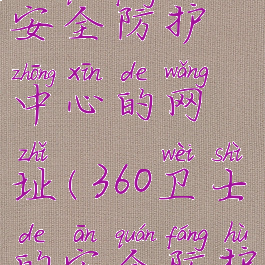 安全防护
zhōng xīn de wǎng
中心的网
zhǐ wèi shì
址(360卫士
de ān quán fáng hù
的安全防护